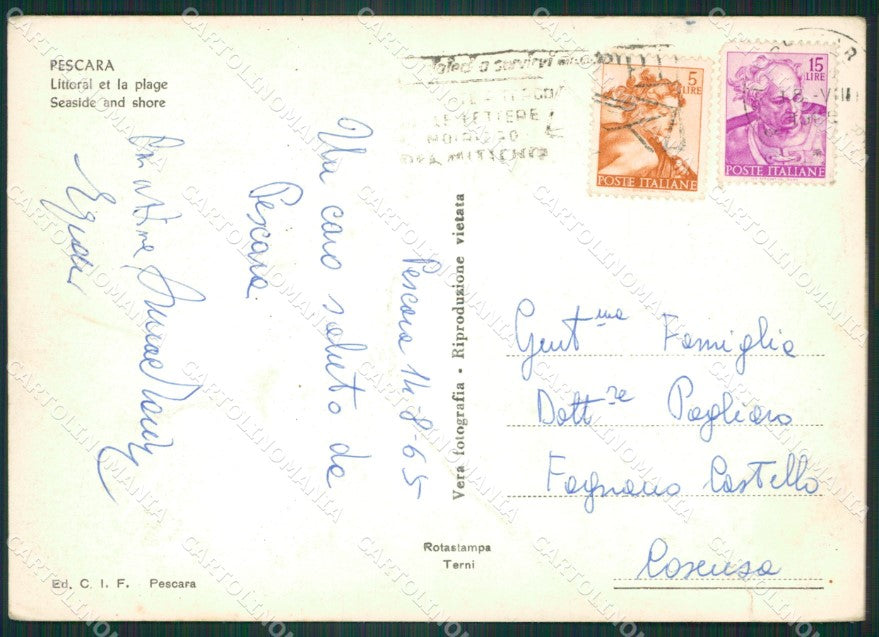 PESCARA
Littoral et la plage
Seaside and shore
Pescara 14-8-65
Un caro saluto da
Pescara
Vera fotografia - Riproduzione vietata
5
LIRE
POSTE ITALIANE
15
LIRE
POSTE ITALIANE
LE LETTERE
VIII
Gent.ma Famiglia
Dott.re Pagliaro
Fagnano Castello
Cosenza
Rotastampa
Terni
Ed. C. I. F. Pescara
CARTOLINOMANIA